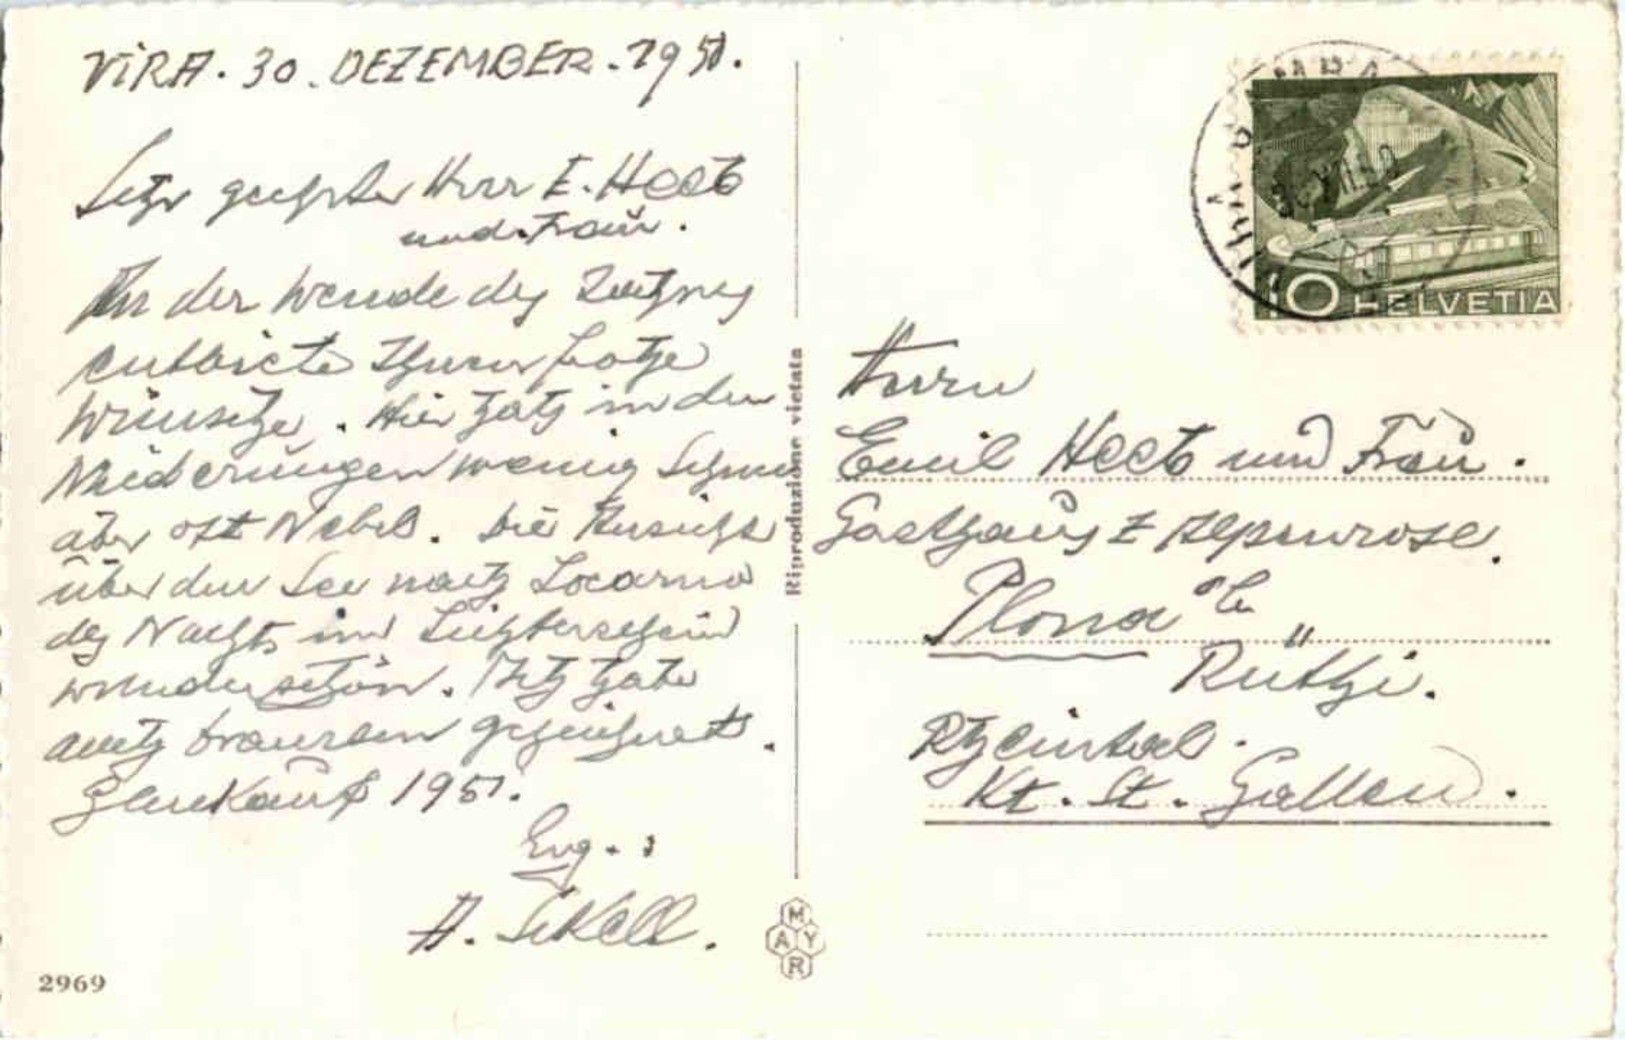 VIRA. 30. DEZEMBER. 1951.
Sehr geehrter Herr E. Heeb
und Frau.
An der Wende des
entbiete Ihnen
Wünsche. Hier hats in den
Niederungen wenig Schnee
aber oft Nebel. Die Aussicht
über den See nach Locarno
des Nachts im Lichterschein
wunderschön.
auch draussen
1951.
Erg. :
A.
2969
Riproduzione vietata
MAYR
10 HELVETIA
Herrn
Emil Heeb und Frau.
Gasthaus z Alpenrose.
Plona
Rüthi.
Rheintal.
Kt. St. Gallen.